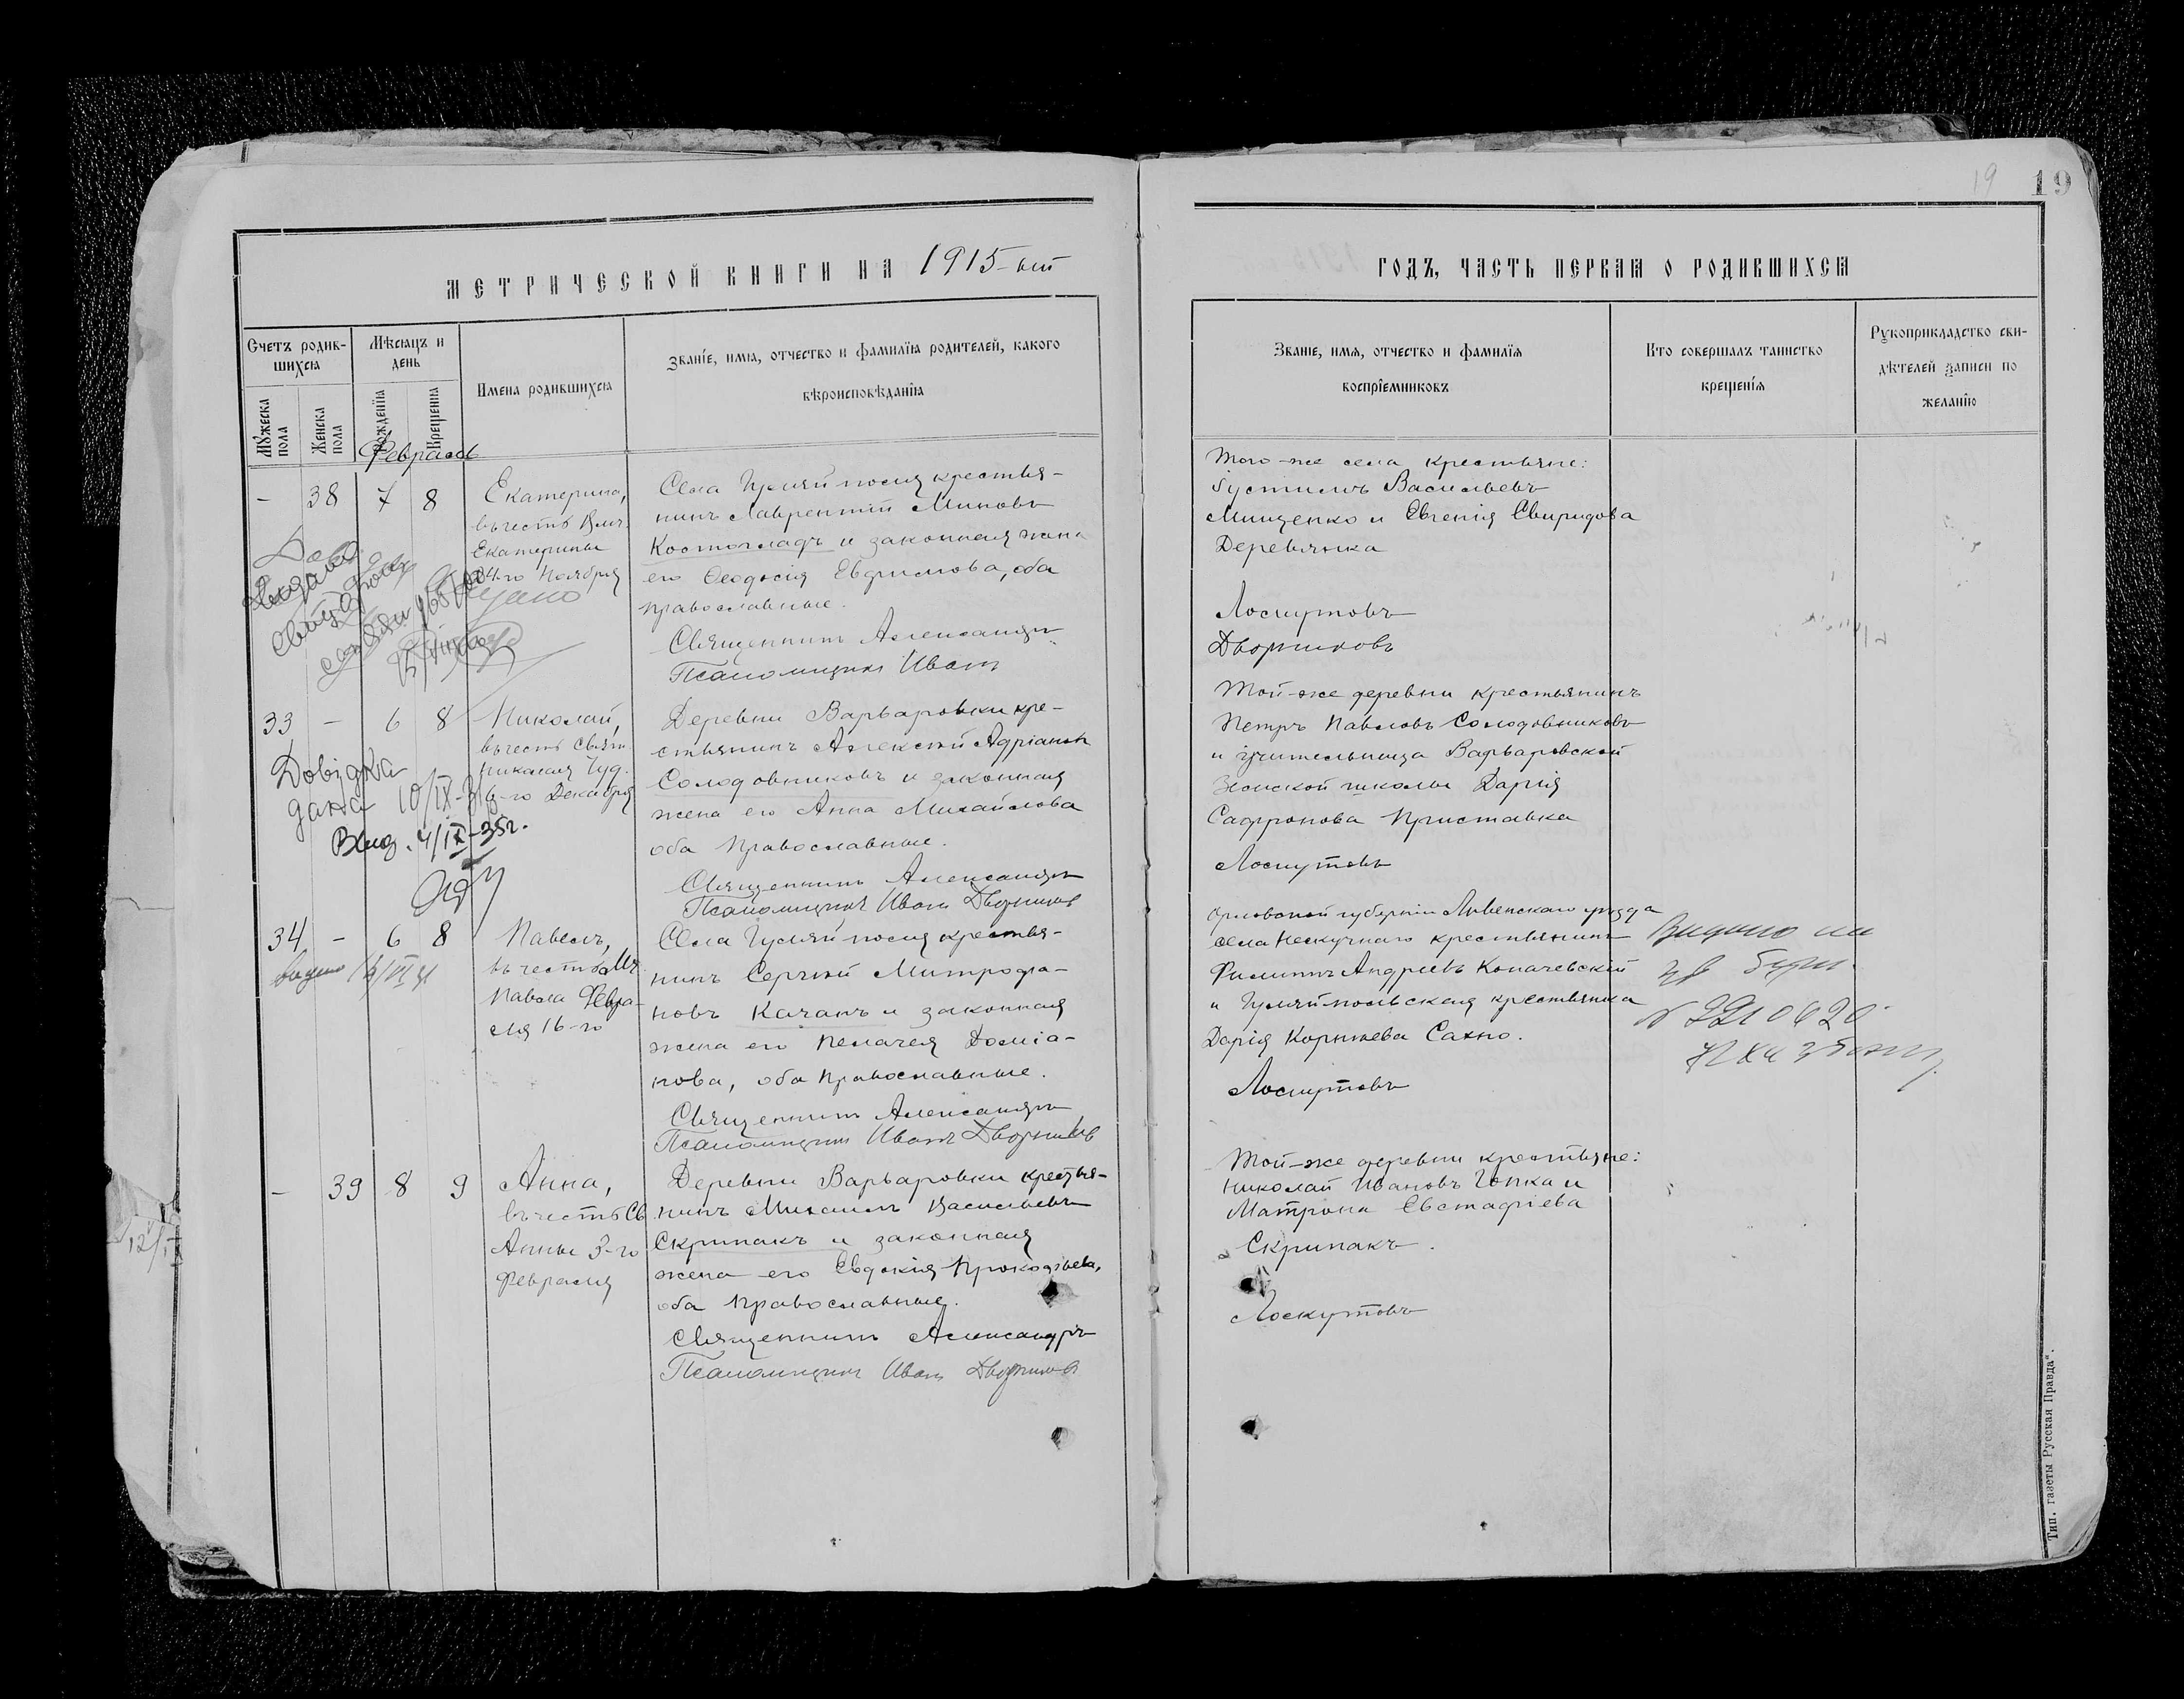 19 19
МЕТРИЧЕСКОЙ КНИГИ НА 1915-ый
ГОДЪ, ЧАСТЬ ПЕРВАЯ О РОДИВШИХСЯ
Счетъ родив-
шихся
Мѣсяцъ и
день
Мужеска
пола
Женска
пола
Рожденія
Крещенія
Имена родившихся
Званіе, имя, отчество и фамилія родителей, какого
вѣроисповѣданія
Званіе, имя, отчество и фамилія
воспріемниковъ
Кто совершалъ таинство
крещенія
Рукоприкладство сви-
дѣтелей записи по
желанію
Февраль
- 38 7 8
Екатерина,
въ честь Влмч.
Екатерины
24-го Ноября
Села Гуляйполя крестья-
нинъ Лаврентій Миновъ
Костогладъ и законная жена
его Ѳеодосія Евдимова, оба
православные.
Священникъ Александръ
Псаломщикъ Иванъ
Того-же села крестьяне:
Васильевъ
Мищенко и Евгенія Свиридова
Деревянка
Лоскутовъ
Дворниковъ
33 - 6 8
Довідка
дана 10/IX-
Вид. 4/IX-35г.
Николай,
въ честь Свят.
Николая Чуд.
6-го Декабря
Деревни Варваровки кре-
стьянинъ Алексій Адріановъ
Солодовниковъ и законная
жена его Анна Михайлова
оба православные.
Священникъ Александръ
Псаломщикъ Иванъ Дворниковъ
Той-же деревни крестьянинъ
Петръ Павловъ Солодовниковъ
и учительница Варваровской
Земской школы Дарія
Сафронова Приставка
Лоскутовъ
34 - 6 8
Павелъ,
въ честь Мч.
Павла Февра-
ля 16-го
Села Гуляйполя крестья-
нинъ Сергій Митрофа-
новъ Качанъ и законная
жена его Пелагея Доміа-
нова, оба православные.
Священникъ Александръ
Псаломщикъ Иванъ Дворниковъ
Орловской губерніи Ливенскаго уѣзда
села Нескучнаго крестьянинъ
Филиппъ Андреевъ Копачевскій
и Гуляйпольская крестьянка
Дарія Корнѣева Сахно.
Лоскутовъ
- 39 8 9
Анна,
въ честь Св.
Анны 3-го
Февраля
Деревни Варваровки крестья-
нинъ Михаилъ Васильевъ
Скрипакъ и законная
жена его Евдокія Прокофьева,
оба православные.
Священникъ Александръ
Псаломщикъ Иванъ Дворниковъ
Той-же деревни крестьяне:
Николай Ивановъ Гопка и
Матрона Евстафіева
Скрипакъ.
Лоскутовъ
Тип. газеты Русская Правда".